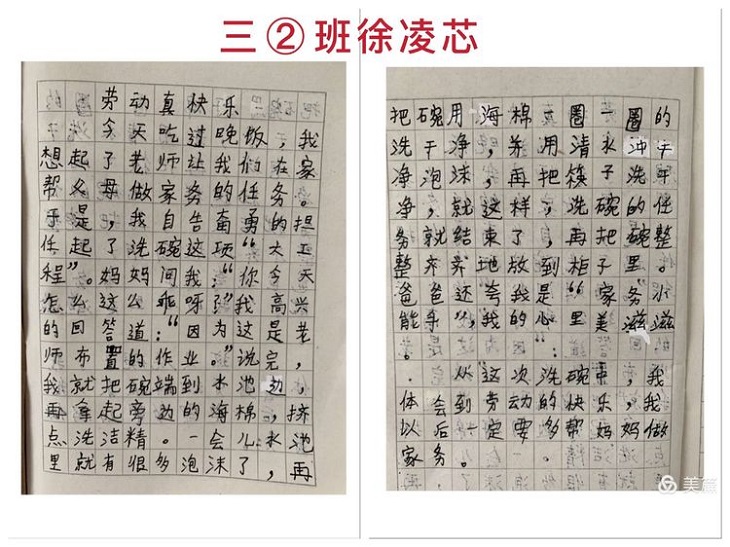 三②班徐凌芯
劳动真快乐
今天吃过晚饭，我
想起了老师让我们在家
帮父母做家务的任务。
于是，我自告奋勇的担
任起了洗碗这项“大工
程”。妈妈问我：“你今天
怎么这么乖呀？”我高兴
的回答道：“因为这是老
师布置的作业。”说完，
我就把碗端到水池边，
再拿起旁边的海棉，挤
点洗洁精。一会儿水池
里就有很多泡沫了，再
把碗用海棉一圈一圈的
洗干净，并用清水冲干
净泡沫，再把筷子洗干
净，就这样，洗碗的任
务就结束了，再把碗整
整齐齐地放到柜子里。
爸爸还夸我是“家务”小
能手”，我的心里美滋滋
从这次洗碗中，我
体会到劳动的快乐，我
以后一定要多帮妈妈做
家务。
美篇